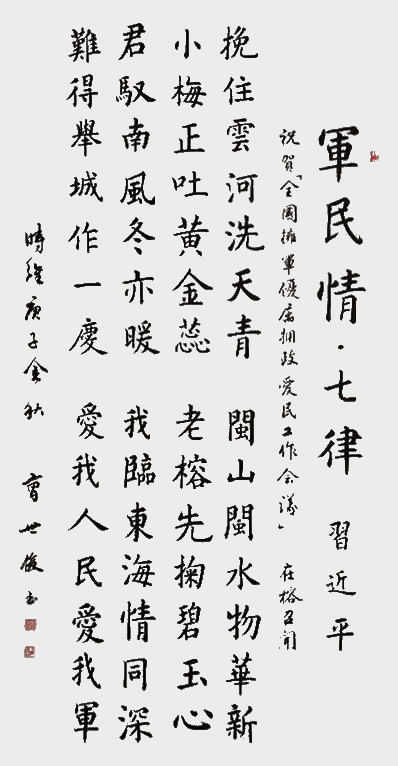 軍民情·七律 習近平
祝賀「全國擁軍優屬擁政愛民工作会議」 在榕召開
挽住雲河洗天青 閩山閩水物華新
小梅正吐黃金蕊 老榕先掬碧玉心
君馭南風冬亦暖 我臨東海情同深
難得舉城作一慶 愛我人民愛我軍
時維庚子金秋 曹世俊书